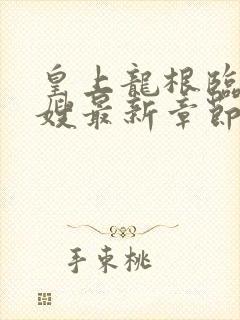 皇上龍根臨
嫂最新章節
手束桃